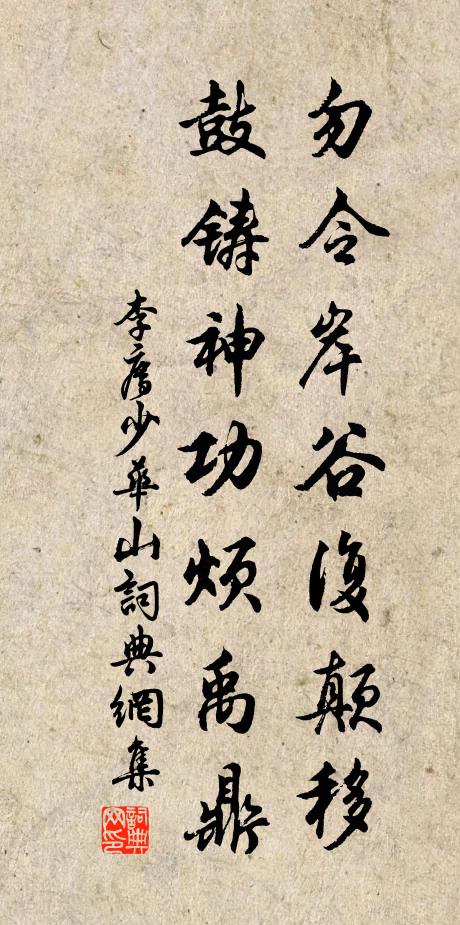 勿令岸谷復顛移
鼓鑄神功煩禹鼎
李廌少華山詞典網集
詞典網印